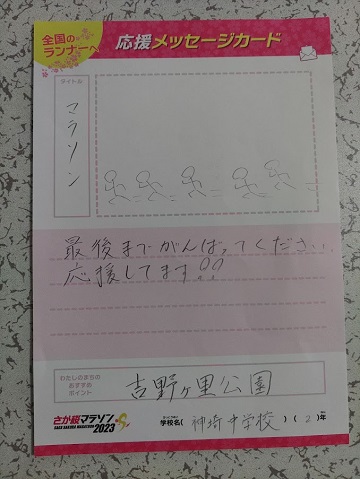 全国の
ランナーへ
応援メッセージカード
タイトル
マラソン
最後までがんばってください。
応援してます!!
わたしのまちの
おすすめ
ポイント
吉野ヶ里公園
さが桜マラソン
2023
学校名(神埼中学校)(2)年